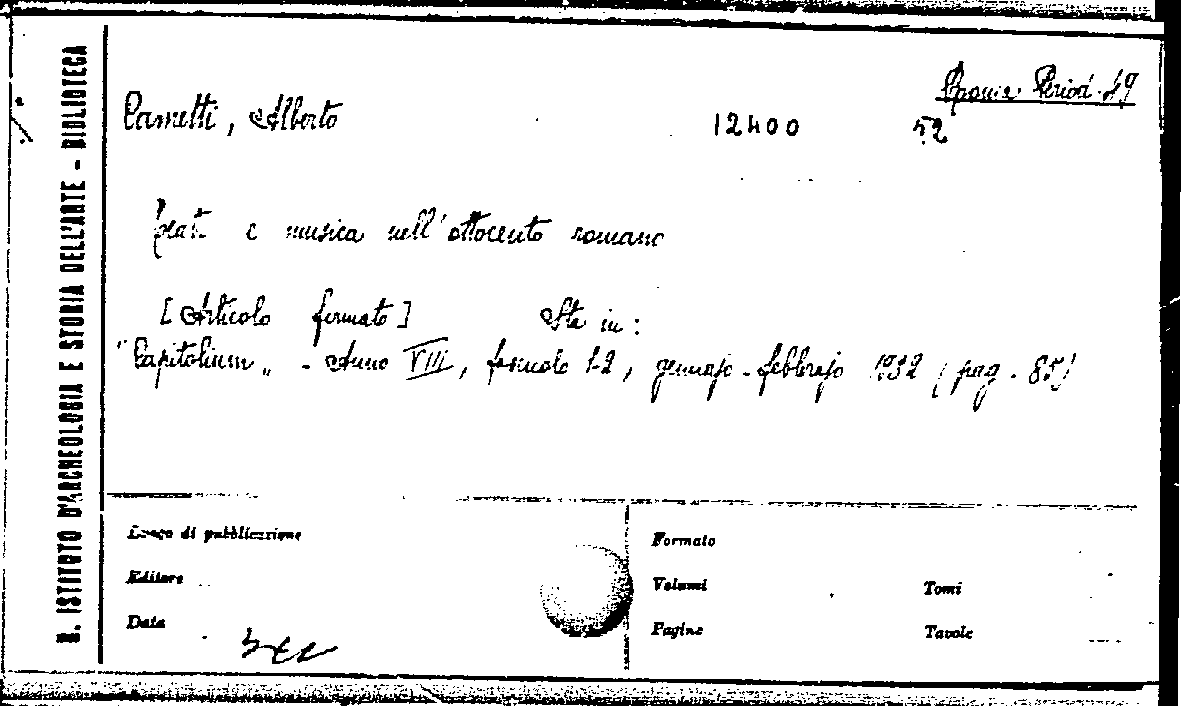 R. ISTITUTO D'ARCHEOLOGIA E STORIA DELL'ARTE - BIBLIOTECA
Period. 49
Cametti, Alberto
12400 52
e musica nell'ottocento romano
[Articolo firmato] Sta in:
"Capitolium„ - Anno VIII, fascicolo 1-2, gennajo-febbrajo 1932 (pag. 85)
Luogo di pubblicazione
Editore
Data
Formato
Volumi Tomi
Pagine Tavole